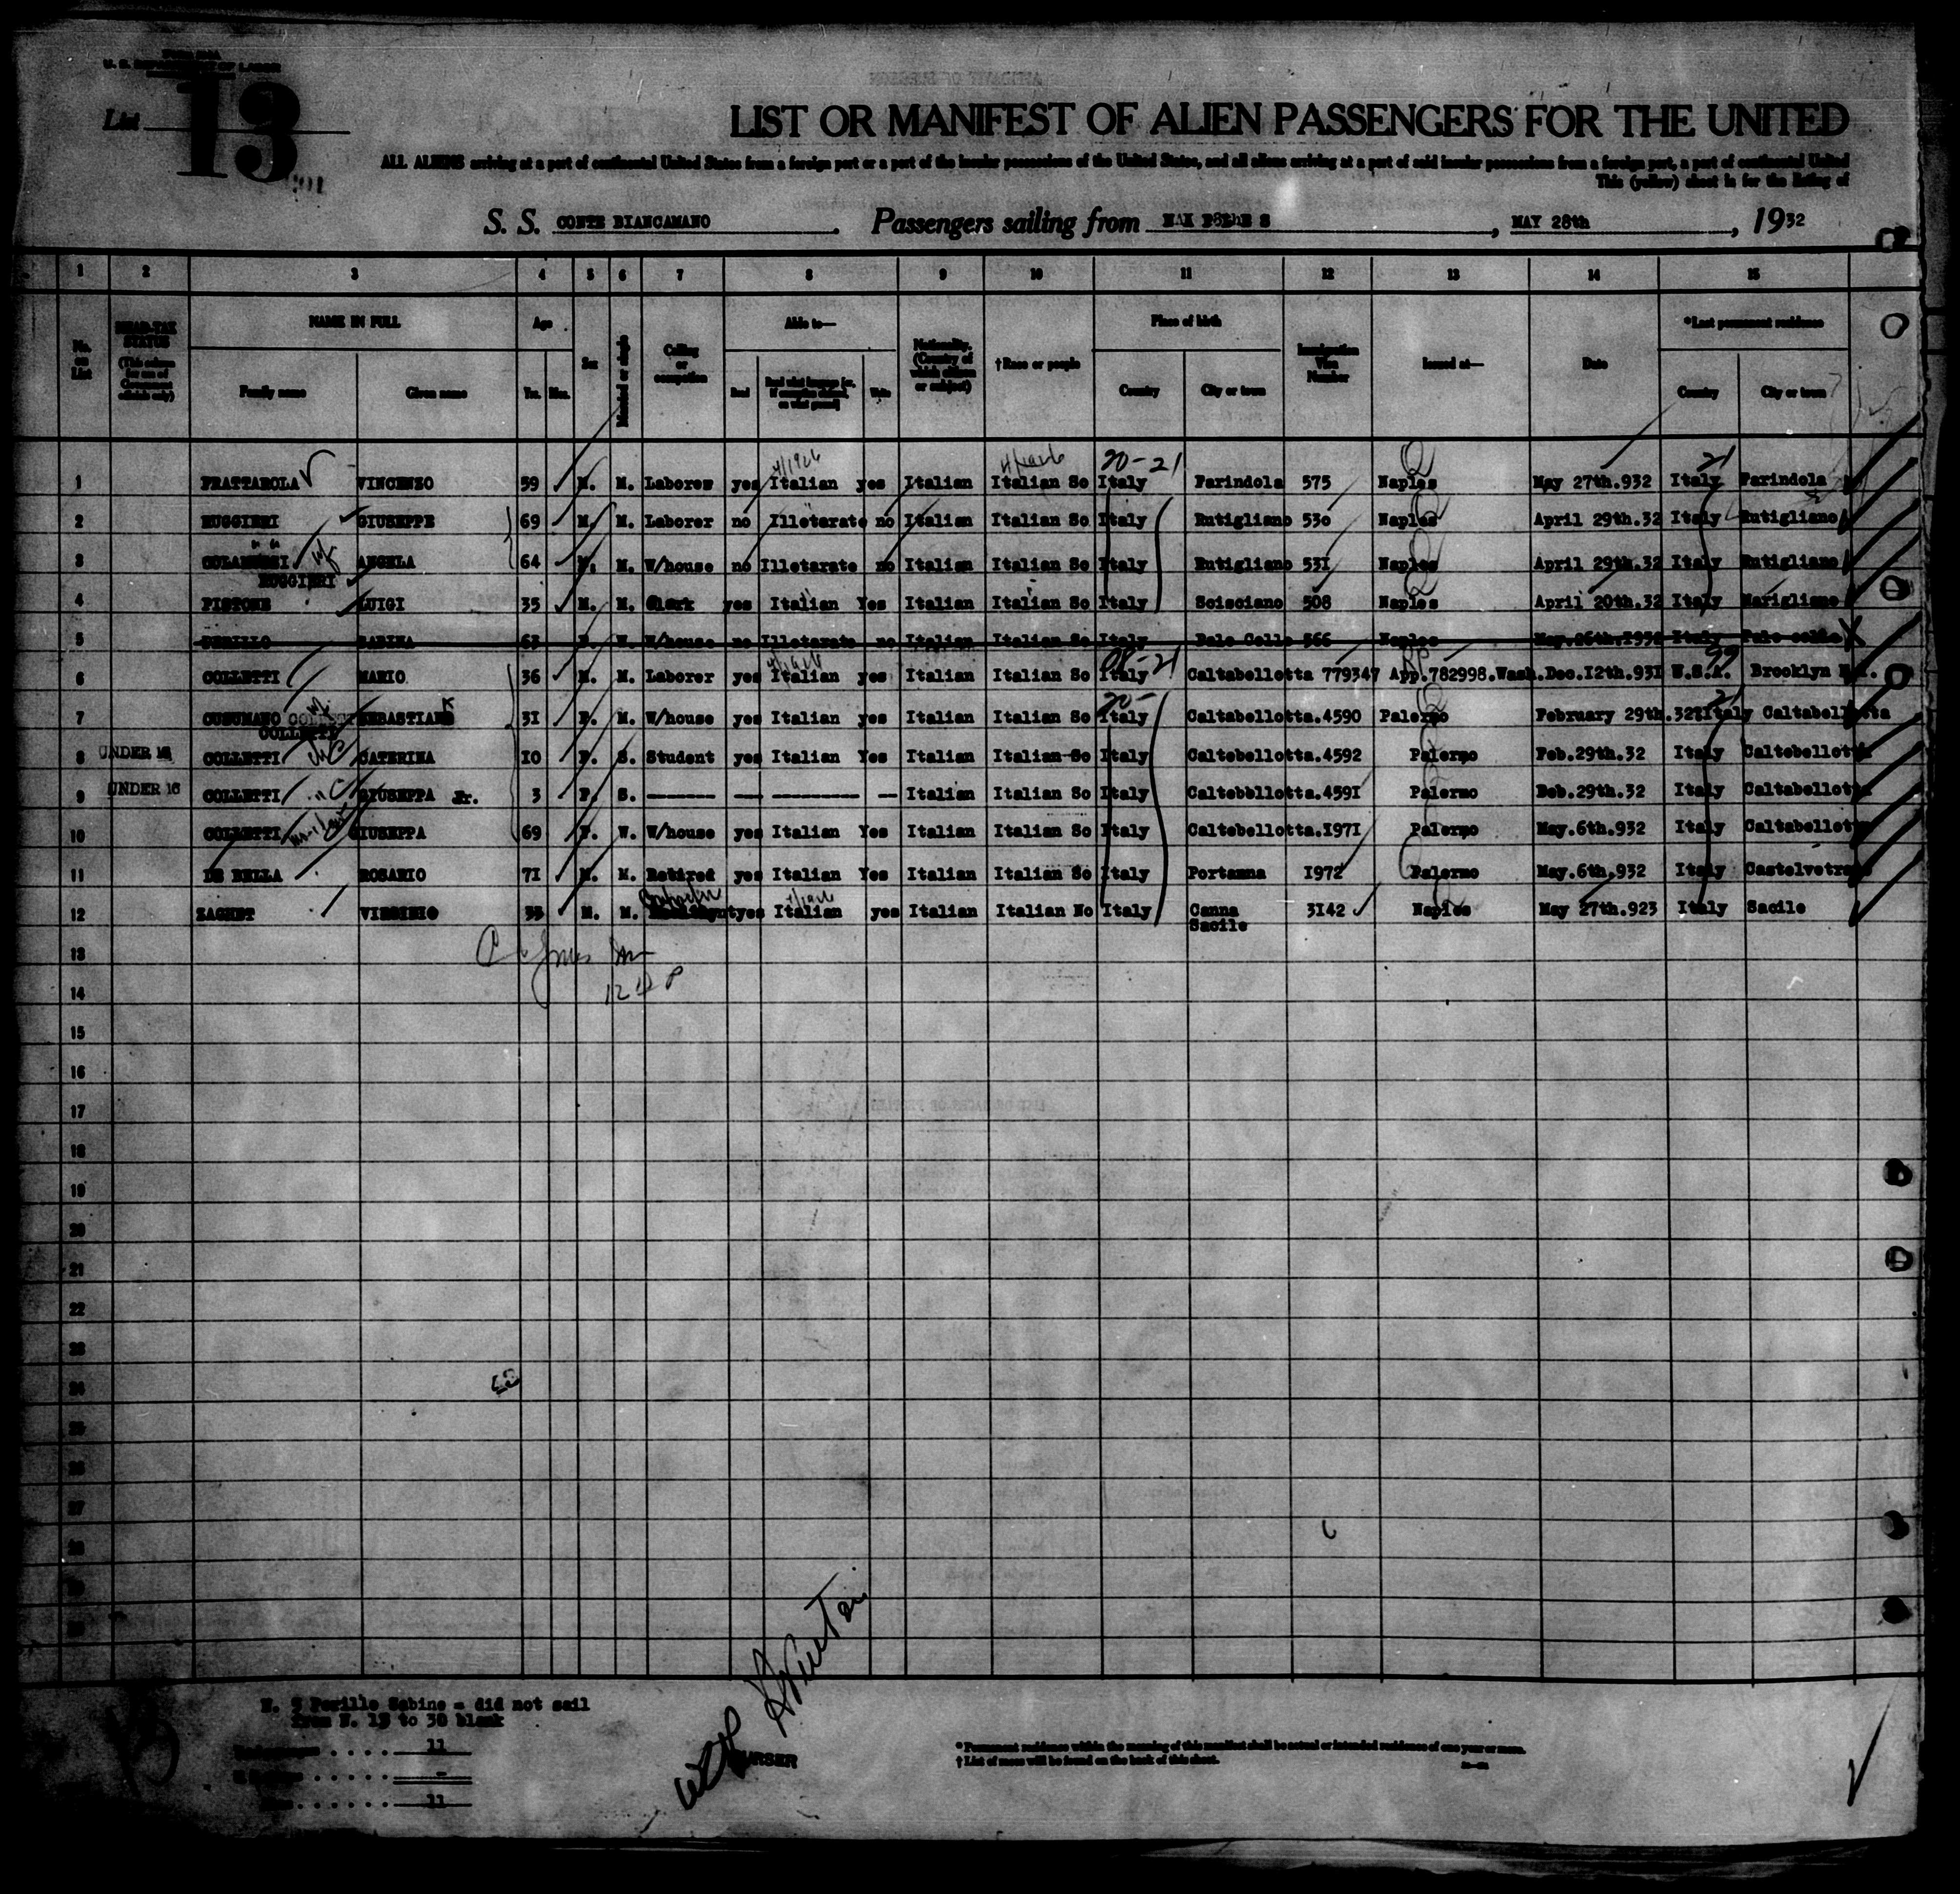 U. S. DEPARTMENT OF LABOR
List 13
LIST OR MANIFEST OF ALIEN PASSENGERS FOR THE UNITED
ALL ALIENS arriving at a port of continental United States from a foreign port or a port of the insular possessions of the United States, and all aliens arriving at a port of said insular possessions from a foreign port, a port of continental United
This (yellow) sheet is for the listing of
S. S. CONTE BIANCAMANO Passengers sailing from NAPLES, MAY 28th, 1932
1 2 3 4 5 6 7 8 9 10 11 12 13 14 15
No. on List
HEAD-TAX STATUS (This column for use of Government officials only)
NAME IN FULL
Family name Given name
Age
Yrs. Mos.
Sex
Married or single
Calling or occupation
Able to—
Read Read what language [or, if exemption claimed, on what ground] Write
Nationality. (Country of which citizen or subject)
†Race or people
Place of birth
Country City or town
Immigration Visa Number
Issued at—
Date
*Last permanent residence
Country City or town
20-21 21
1 FRATTAROLA VINCENZO 59 M. M. Laborer yes Italian yes Italian Italian So Italy Farindola 575 Naples May 27th.932 Italy Farindola
2 RUGGIERI GIUSEPPE 69 M. M. Laborer no Illetarate no Italian Italian So Italy Rutigliano 530 Naples April 29th.32 Italy Rutigliano
3 ANGELA 64 F. M. W/house no Illetarate no Italian Italian So Italy Rutigliano 531 Naples April 29th.32 Italy Rutigliano
RUGGIERI
4 PISTONE LUIGI 35 M. M. Clerk yes Italian Yes Italian Italian So Italy Scisciano 508 Naples April 20th.32 Italy Marigliano
5 PERILLO SABINA 63 F. W. W/house no Illetarate no Italian Italian So Italy 566 Naples May.26th.1932 Italy
21 99
6 COLLETTI MARIO 36 M. M. Laborer yes Italian yes Italian Italian So Italy Caltabellotta 779347 App.782998.Wash.Dec.12th.931 U.S.A. Brooklyn N.Y.
20- 21
7 CUSUMANO COLLETTI SEBASTIANA 31 F. M. W/house yes Italian yes Italian Italian So Italy Caltabellotta.4590 Palermo February 29th.32 Italy Caltabellotta
COLLETTI
8 UNDER 16 COLLETTI CATERINA 10 F. S. Student yes Italian Yes Italian Italian So Italy Caltebellotta.4592 Palermo Feb.29th.32 Italy Caltebellotta
9 UNDER 16 COLLETTI GIUSEPPA Jr. 3 F. S. ------- --- --------- -- Italian Italian So Italy Caltebbllotta.4591 Palermo Deb.29th.32 Italy Caltabellotta
10 COLLETTI GIUSEPPA 69 F. W. W/house yes Italian Yes Italian Italian So Italy Caltebellotta.1971 Palermo May.6th.932 Italy Caltabellotta
11 DI BELLA ROSARIO 71 M. M. Retired yes Italian Yes Italian Italian So Italy Partanna 1972 Palermo May.6th.932 Italy Castelvetrano
12 ZAGNET VIRGINIO 35 M. M. yes Italian yes Italian Italian No Italy Canna 3142 Naples May 27th.923 Italy Sacile
Sacile
13
14
15
16
17
18
19
20
21
22
23
24
25
26
27
28
29
30
N. 5 Perillo Sabina = did not sail
from N. 13 to 30 blank
11
-
11
PURSER
* Permanent residence within the meaning of this manifest shall be actual or intended residence of one year or more.
† List of races will be found on the back of this sheet.